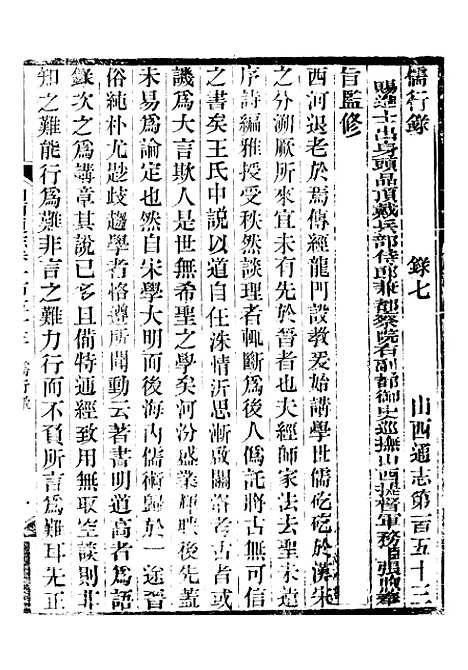 儒行錄　錄七　山西通志第百五十三
賜進士出身頭品頂戴兵部侍郎兼都察院右副都御史巡撫山西提督軍務臣張煦奉
旨監修
西河退老於焉傳經龍門設教爰始講學世儒矻矻於漢宋
之分溯厥所來宜未有先於晉者也夫經師家法去聖未遠
序詩編雅授受秩然談理者輒斷為後人僞託將古將無可讀
之書矣王氏中說以道自任洙情沂思漸啟關洛考古者或
譏為大言欺人是世無希聖之學矣河汾盛業輝映後先蓋
未易為論定也然自宋學大明而後海內儒術歸於一途晉
俗純朴尤尟歧趨學者恪遵所聞動云著書明道高者為語
錄次之為講章其說已具備特通經致用無取空談則非
知之難能行為難非言之難力行而不負所言為難耳先正